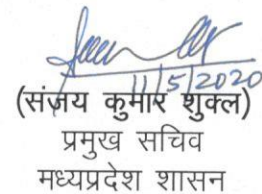 11/5/2020
(संजय कुमार शुक्ल)
प्रमुख सचिव
मध्यप्रदेश शासन